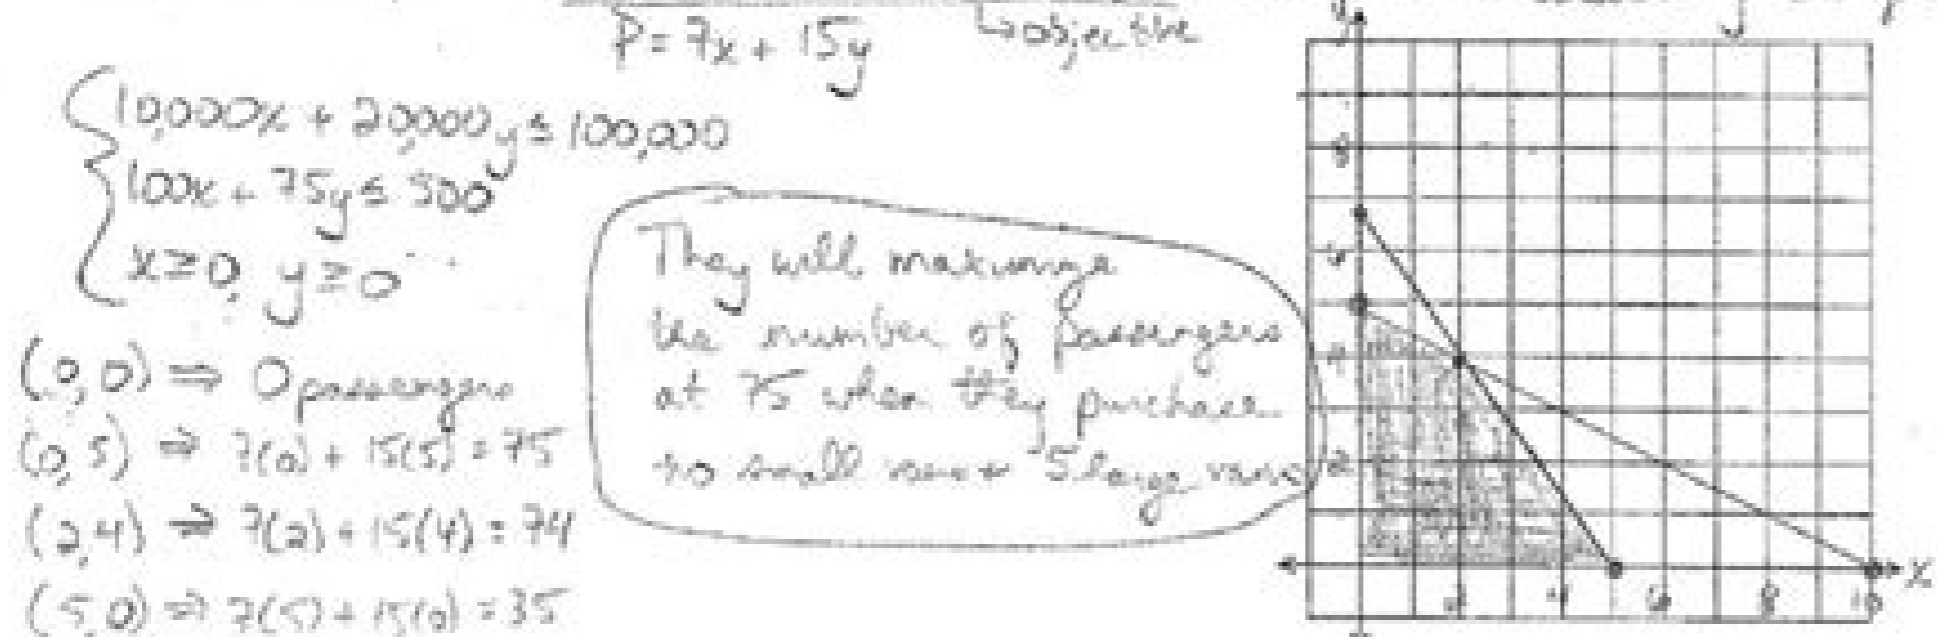 P = 7x + 15y ↳ objective
10,000x + 20,000y ≤ 100,000
100x + 75y ≤ 500
x ≥ 0, y ≥ 0
(0,0) ⇒ 0 passengers
(0,5) ⇒ 7(0) + 15(5) = 75
(2,4) ⇒ 7(2) + 15(4) = 74
(5,0) ⇒ 7(5) + 15(0) = 35
They will maximize
the number of passengers
at 75 when they purchase
no small vans + 5 large vans
y
8
6
4
2
2 4 6 8 10 x